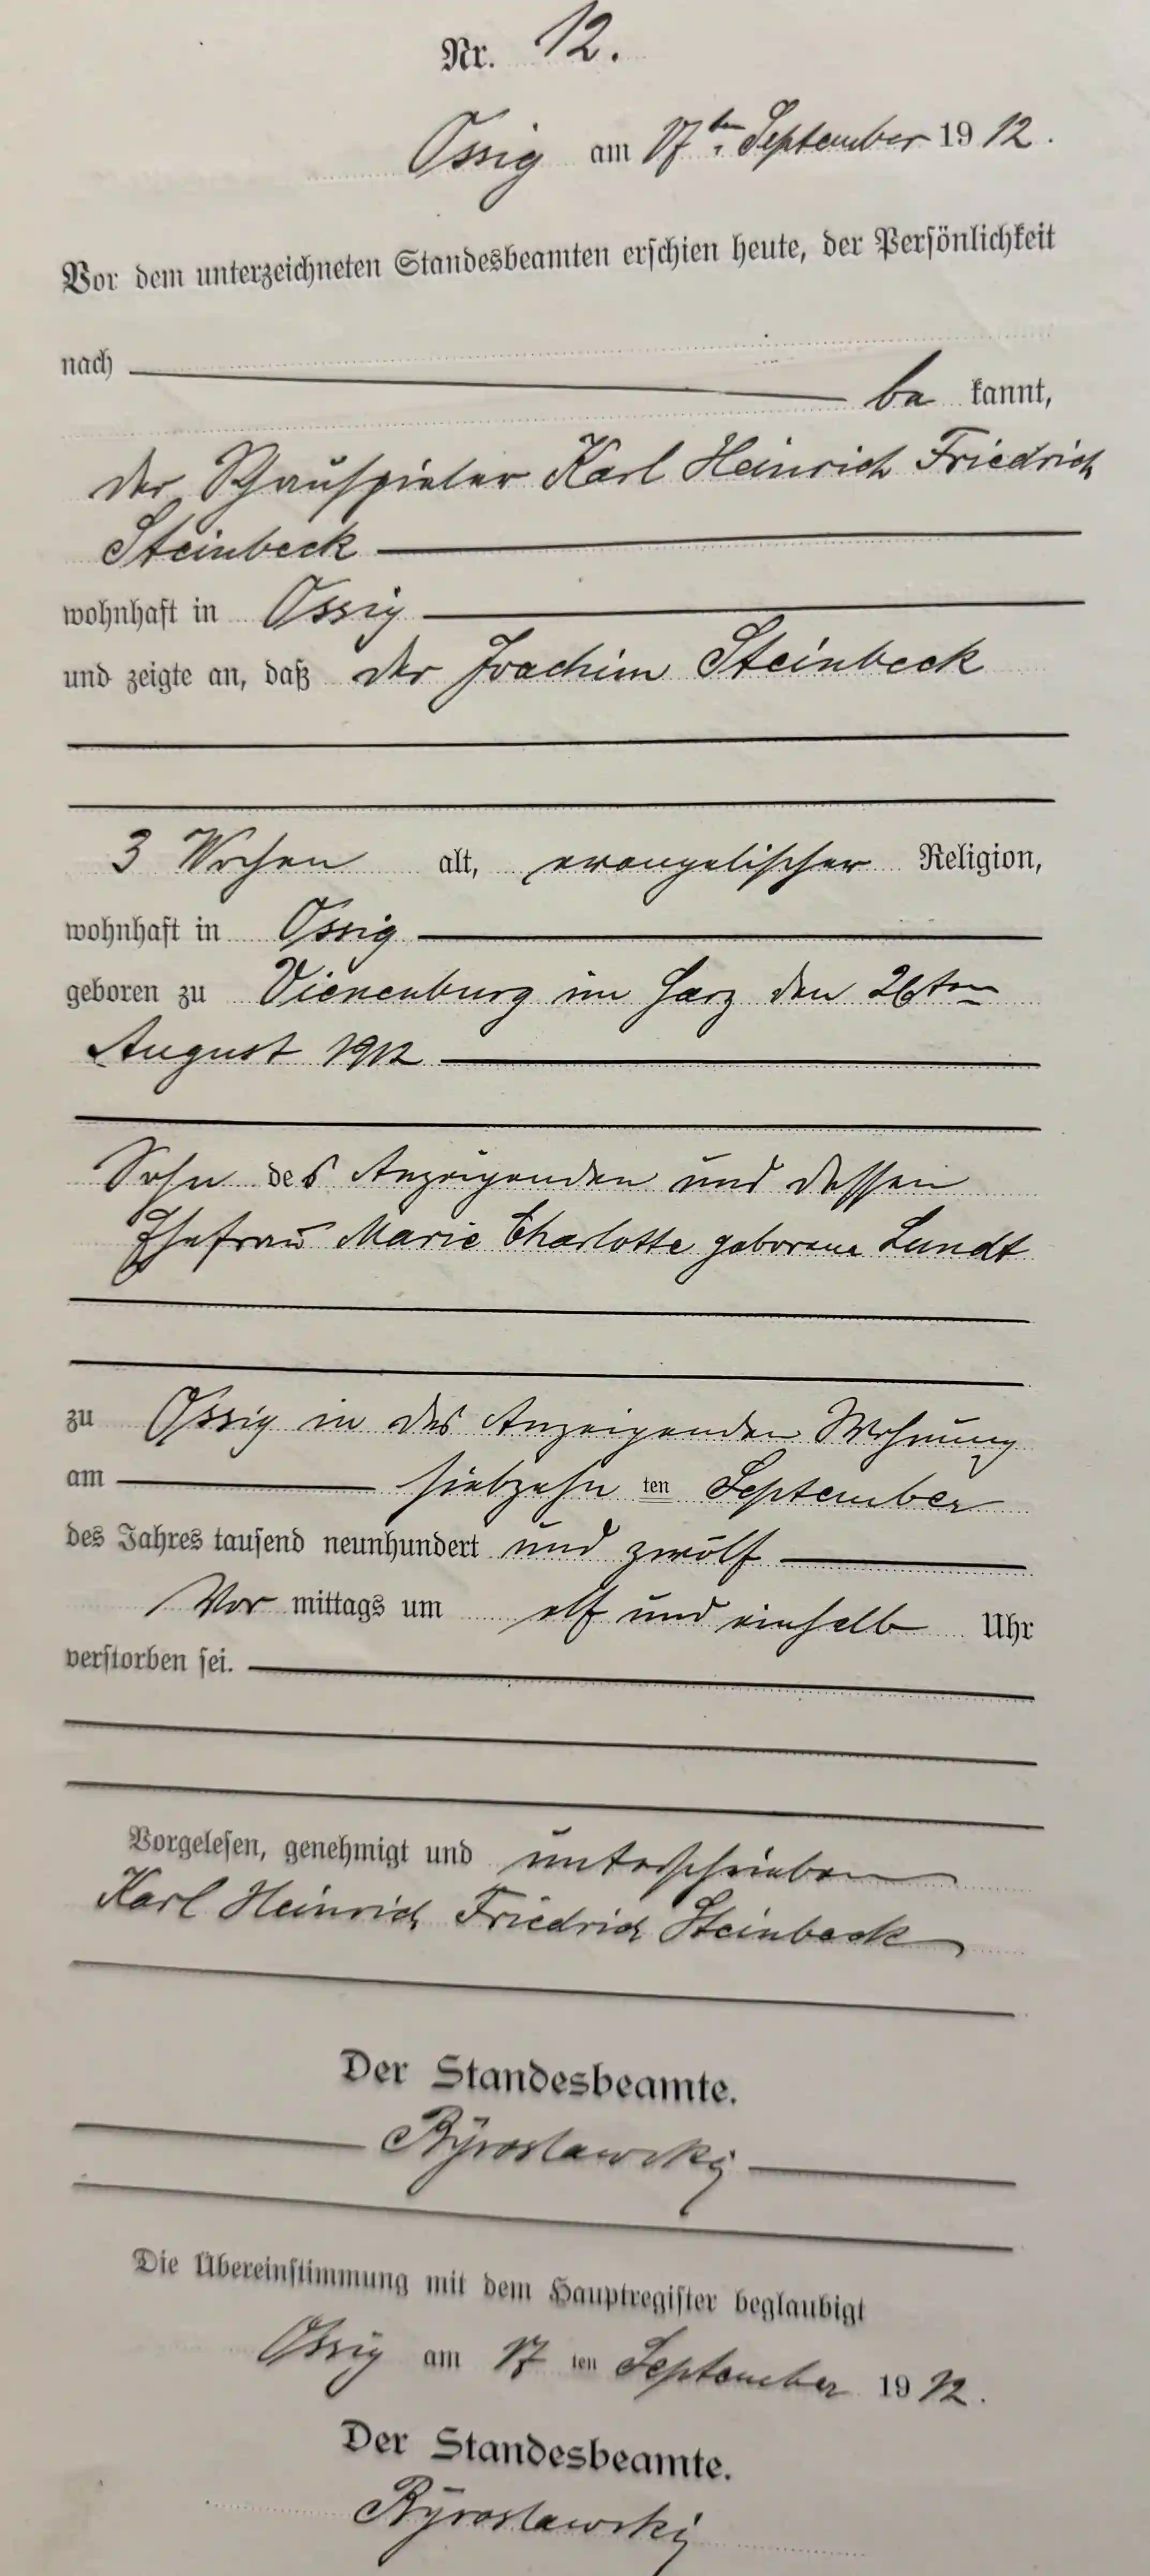 Nr. 12.
Ossig am 17ten September 1912.
Vor dem unterzeichneten Standesbeamten erschien heute, der Persönlichkeit
nach
be kannt,
der Schauspieler Karl Heinrich Friedrich
Steinbeck
wohnhaft in Ossig
und zeigte an, daß der Joachim Steinbeck
3 Wochen alt, evangelischer Religion,
wohnhaft in Ossig
geboren zu Vienenburg im Harz den 26ten
August 1912
Sohn des Anzeigenden und dessen
Ehefrau Marie Charlotte geborene Lundt
zu Ossig in des Anzeigenden Wohnung
am siebzehn ten September
des Jahres tausend neunhundert und zwölf
Vor mittags um elf und einhalb Uhr
verstorben sei.
Vorgelesen, genehmigt und unterschrieben
Karl Heinrich Friedrich Steinbeck
Der Standesbeamte.
Die Übereinstimmung mit dem Hauptregister beglaubigt
Ossig am 17 ten September 1912.
Der Standesbeamte.